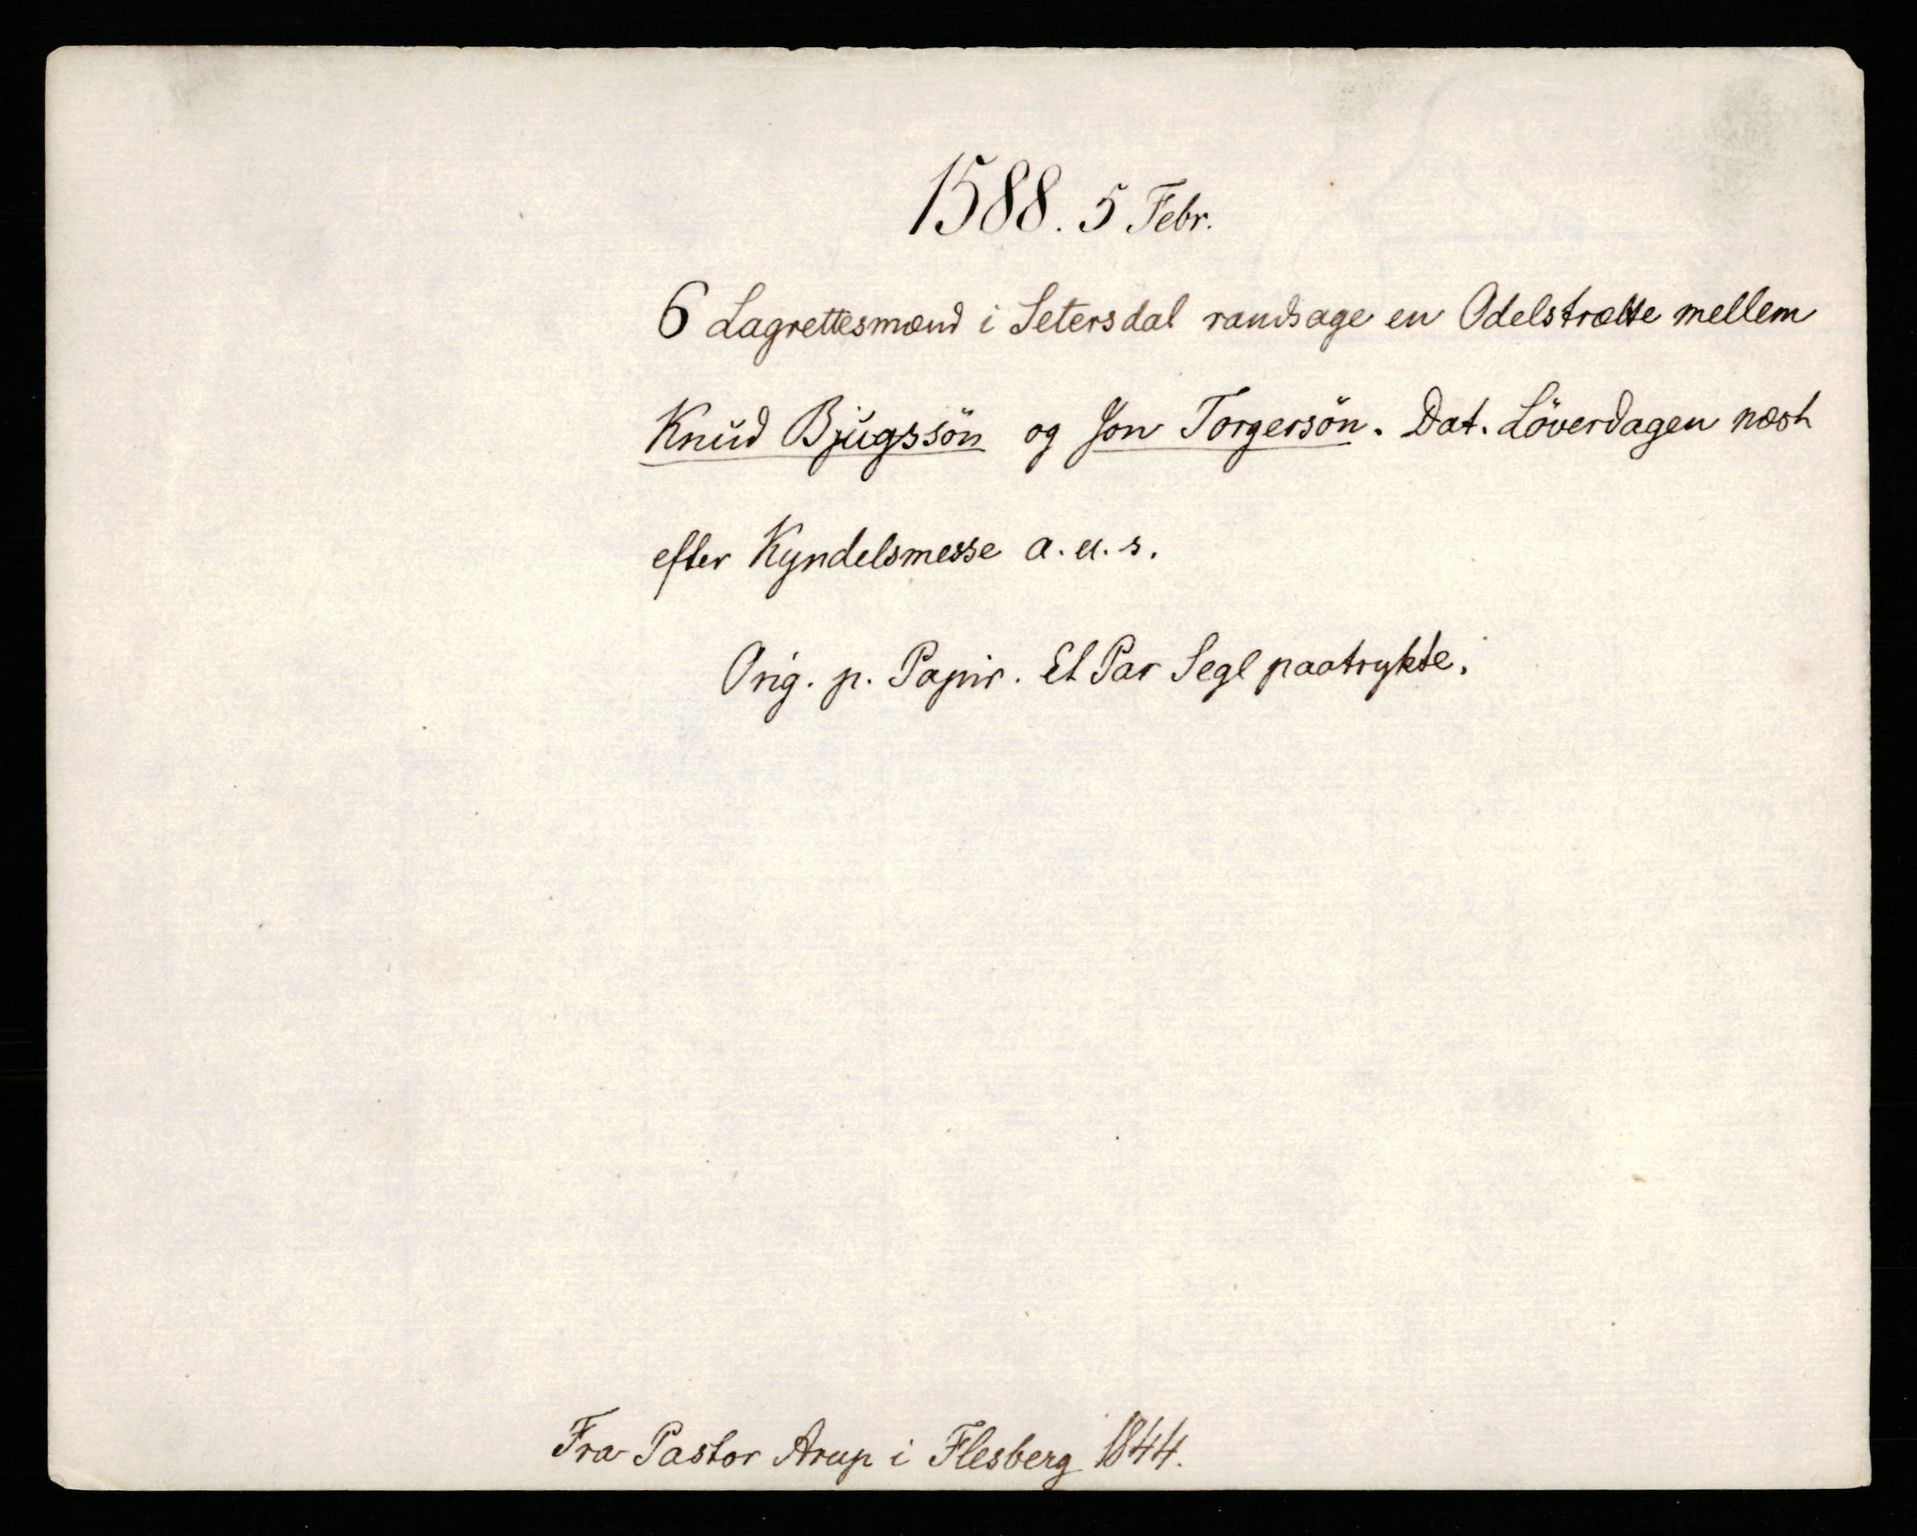 1588. 5 Febr.
6 Lagrettesmænd i Setersdal randsage en Odelstrætte mellem
Knud Bjugssön og Jon Torgersön. Dat. Löverdagen næst
efter Kyndelsmesse a. u. s.
Orig. p. Papir. Et Par Segl paatrykte.
Fra Pastor Arup i Flesberg 1844.